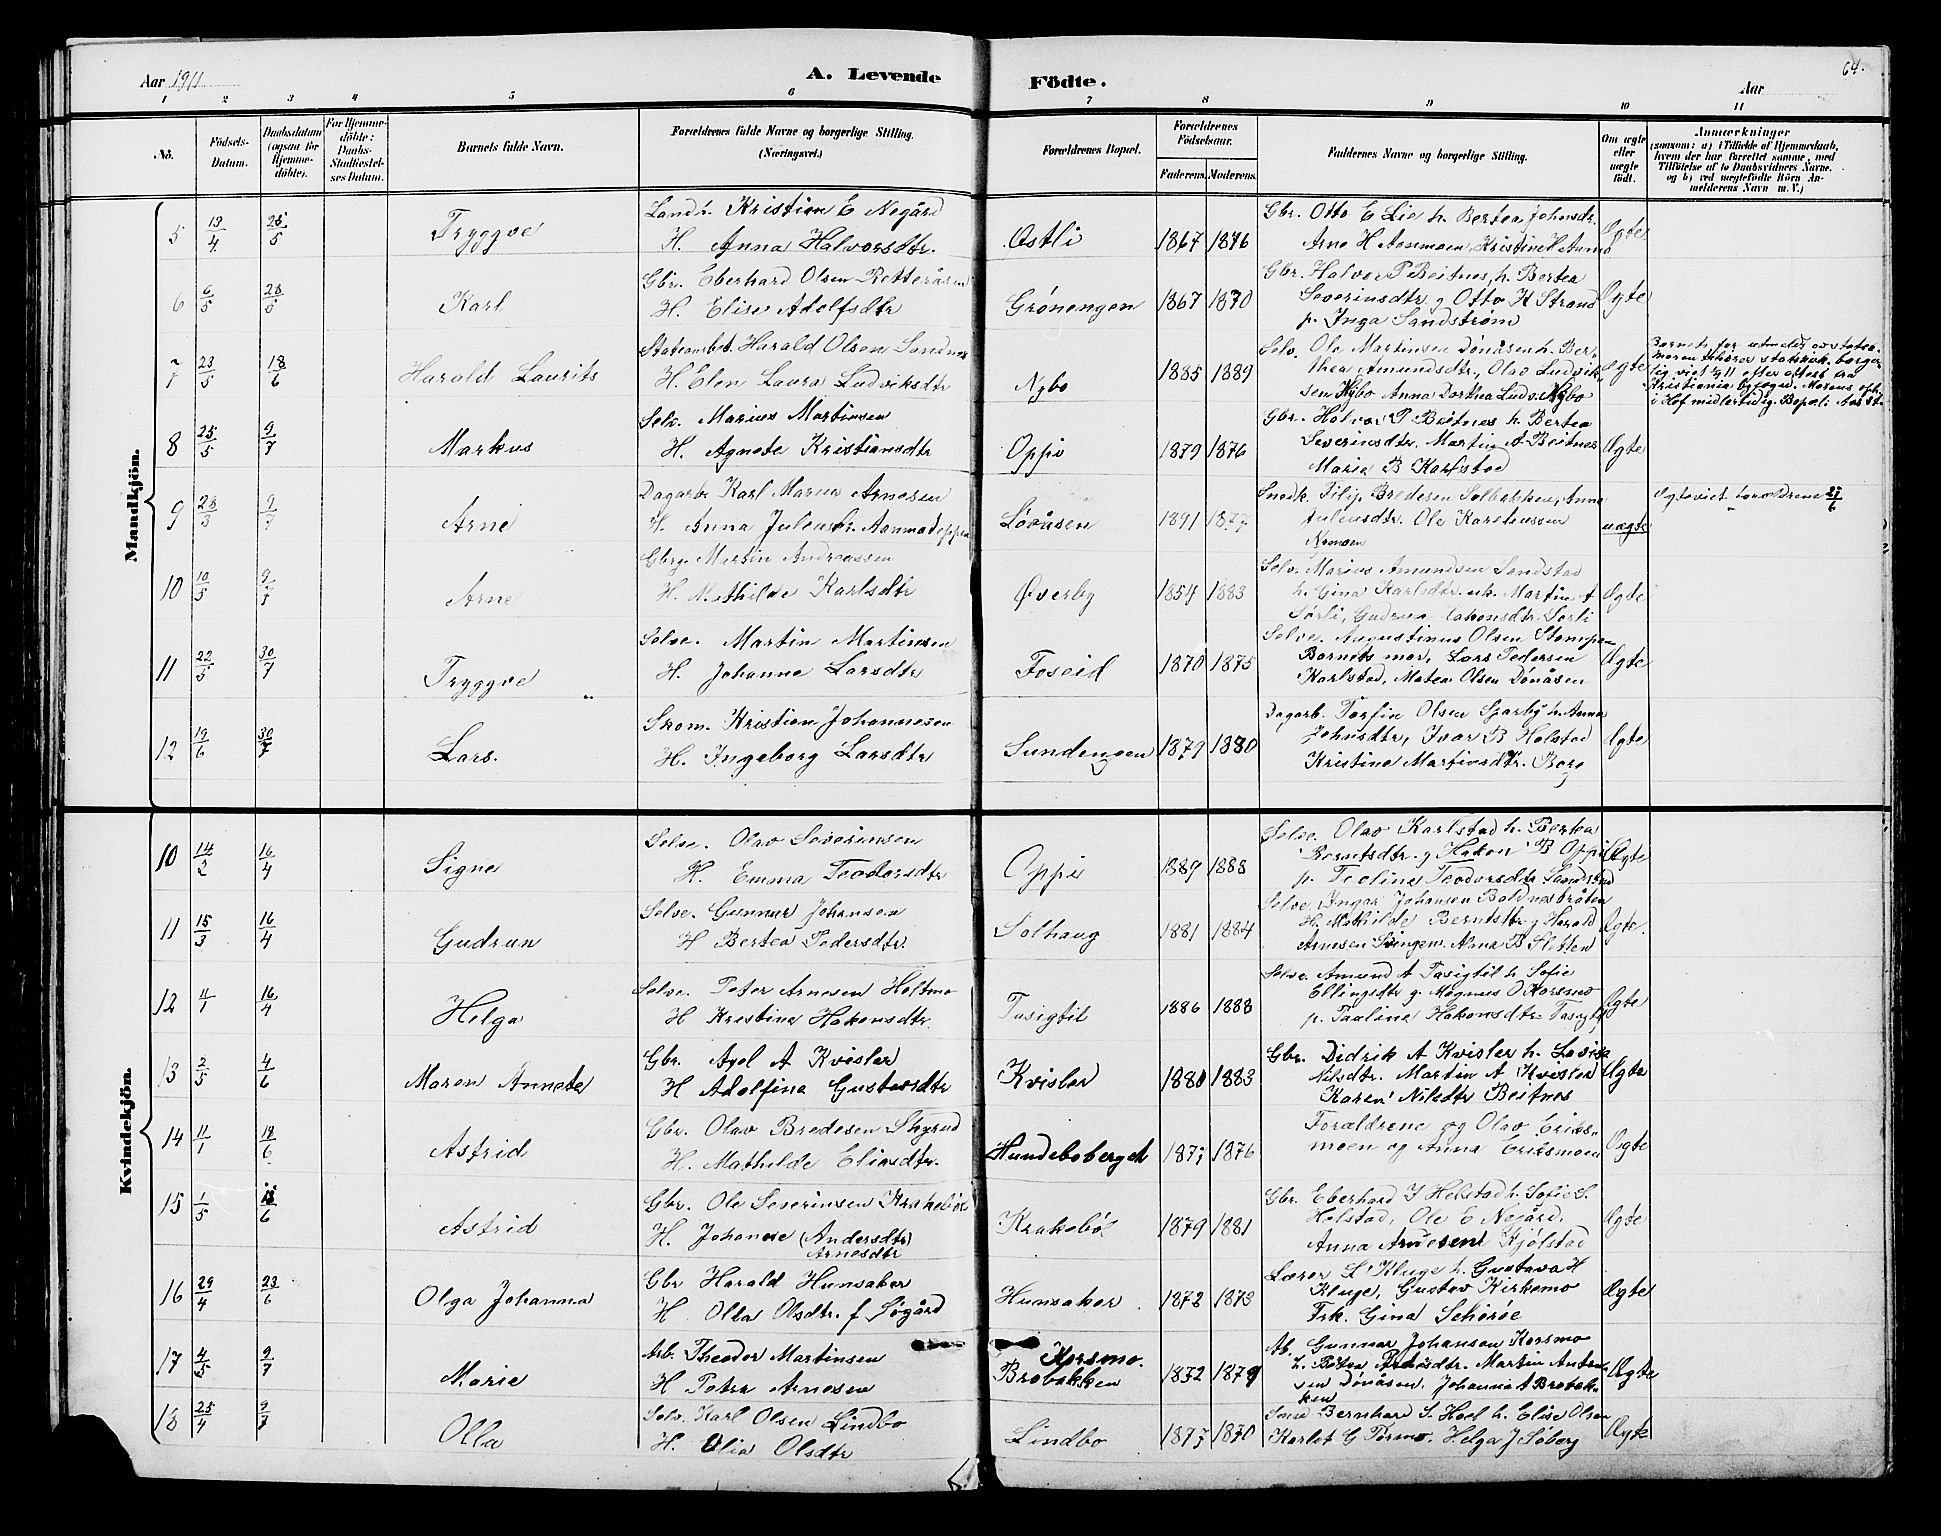 Aar 1911
A. Levende
Födte.
Aar
64.
1 2 3 4 5 6 7 8 9 10 11
No.
Födsels-Datum.
Daabsdatum (ogsaa for Hjemme-döbte).
For Hjemme-döbte: Daabs-Stadfæstel-ses Datum.
Barnets fulde Navn.
Forældrenes fulde Navne og borgerlige Stilling. (Næringsvei.)
Forældrenes Bopæl.
Forældrenes Födselsaar.
Faderens. Moderens.
Faddernes Navne og borgerlige Stilling.
Om ægte eller uægte födt.
Anmærkninger
(saasom: a) i Tilfælde af Hjemmedaab,
hvem der har forrettet samme, med
Tilföielse af to Daabsvidners Navne.
og b) ved uægtefödte Börn An-
melderens Navn m. V.)
Mandkjön.
5 13/4 25/5 Tryggve
Landh. Kristian E Negård
H. Anna Halvorsdtr.
Østli 1867 1876
Gbr. Otto E Lie h. Bertea Johansdtr.
Arne H Aanmoen, Kristine H Aanmo
Ægte
6 6/5 28/5 Karl
Gbr. Eberhard Olsen Retteråsen
H. Elise Adolfsdtr
Grønengen 1867 1870
Gbr. Halvor P Beitnes, h. Bertea
Severinsdtr g Otto K Strand
p. Inga Sandstrøm
Ægte
7 23/5 18/6 Harald Laurits
Harald Olsen Sandnes
H. Elen Laura Ludviksdtr
Nybo 1885 1889
Selv. Ole Martinsen Dónåsen h. Ber-
thea Amundsdtr., Olav Ludvik-
sen Nybo Anna Dorthea Ludv. Nybo
Ægte
Kristiania byfoged.
8 25/5 9/7 Markus
Selv. Marius Martinsen
H. Agnete Kristiansdtr
Oppi 1879 1876
Gbr. Halvor P Beitnes h. Bertea
Severinsdtr, Martin A Beitnes
Marie B Karlstad
Ægte
9 28/3 9/7 Arne
Dagarb. Karl Marius Arnesen
H. Anna Juliusdtr. Aanmodeppen
Lóvåsen 1891 1877
Snedk. Filip Bredesen Solbakken, Anna
Juliusdtr. Ole
Nymoen
uægte
Ægteviet forældrene 25/6
10 10/5 9/7 Arne
Gbrg. Martin Andreassen
H. Mathilde Karlsdtr
Øverby 1854 1883
Selv. Marius Amundsen Sandstad
h. Gina Karlsdtr. Martin A
Sørli, Gudrun Hakonsdtr Sorli
Ægte
11 22/5 30/7 Tryggve
Selve. Martin Martinsen
H. Johanne Larsdtr
Foseid 1870 1875
Selve. Augustinus Olsen Stompen
Barnets mor, Lars Pedersen
Karlstad, Matea Olsen Dónåsen
Ægte
12 19/6 30/7 Lars.
Skom. Kristian Johannesen
H. Ingeborg Larsdtr
Sundengen 1879 1880
Dagarb. Torfin Olsen Sparby h. Anna
Johnsdtr, Ivar B Holstad
Kristine Martinsdtr. Berg
Ægte
Kvindekjön.
10 14/2 16/4 Signe
Selve. Olav Severinsen
H. Emma Teodorsdtr
Oppi 1889 1888
Selve. Olav Karlstad h. Bertea
Berntsdtr. g Hakon B Oppi
p. Teoline Teodorsdtr Sandstad
Ægte
11 15/3 16/4 Gudrun
Selve. Gunnar Johansen
H Bertea Pedersdtr.
Solhaug 1881 1884
Selve. Ingar Johansen Boldnesbråten
H. Mathilde Berntsdtr g Harald
Arnesen Svingen. Alma B Sletten
Ægte.
12 11/1 16/4 Helga
Selve. Peter Arnesen Holtmo
H Kristine Hakonsdtr.
Tasigtil 1886 1888
Selve Amund A Tasigtil h Sofie
Ellingsdtr g. Magnus O Korsmo
p. Pauline Hakonsdtr Tasigtil
Ægte
13 2/5 4/6 Maren Annete
Gbr. Axel A Kvisler
H Adolfine Gustavsdtr
Kvisler 1880 1883
Gbr. Didrik A Kvisler h. Lovise
Nilsdtr. Martin A Kvisler
Karen Nilsdtr Beitnes
Ægte
14 11/1 18/6 Astrid
Gbr. Olav Bredesen Skyrud
H. Mathilde Eliasdtr.
Hundeboberget 1877 1876
Forældrene og Olav Eriks-
moen og Anna Eriksmoen
Ægte
15 1/5 18/6 Astrid
Gbr. Ole Severinsen Krakeböl
H. Johanne (Andersdtr)
Arnesdtr
Krakeböl 1879 1881
Gbr. Eberhard J Helstad h. Sofie S.
Helstad, Ole E Negård.
Anna Arnesen Kjölstad
Ægte
16 29/4 23/6 Olga Johanna
Gbr Harald Hunsaker
H Olla Olsdtr. f Søgård
Hunsaker 1872 1873
Lærer L Kluge h. Gustava H
Kluge, Gustav Kirkemo
Frk. Gina Schørøe
Ægte
17 4/5 9/7 Marie
Arb. Theodor Martinsen
H Petra Arnesen
Korsmo.
Brobakken 1872 1879
Ab. Gunnar Johansen Korsmo
h. Betea Pedersdtr. Martin Anton-
sen Dónåsen. Johanna A Brobak-
ken
Ægte
18 25/4 9/7 Olla
Selv. Karl Olsen Lindbo
H. Olia Olsdtr
Lindbo 1877 1870
Smed Bernhard S. Hoel h. Elise Olsen
Karlot G Persmo. Helga J Søberg
Ægte